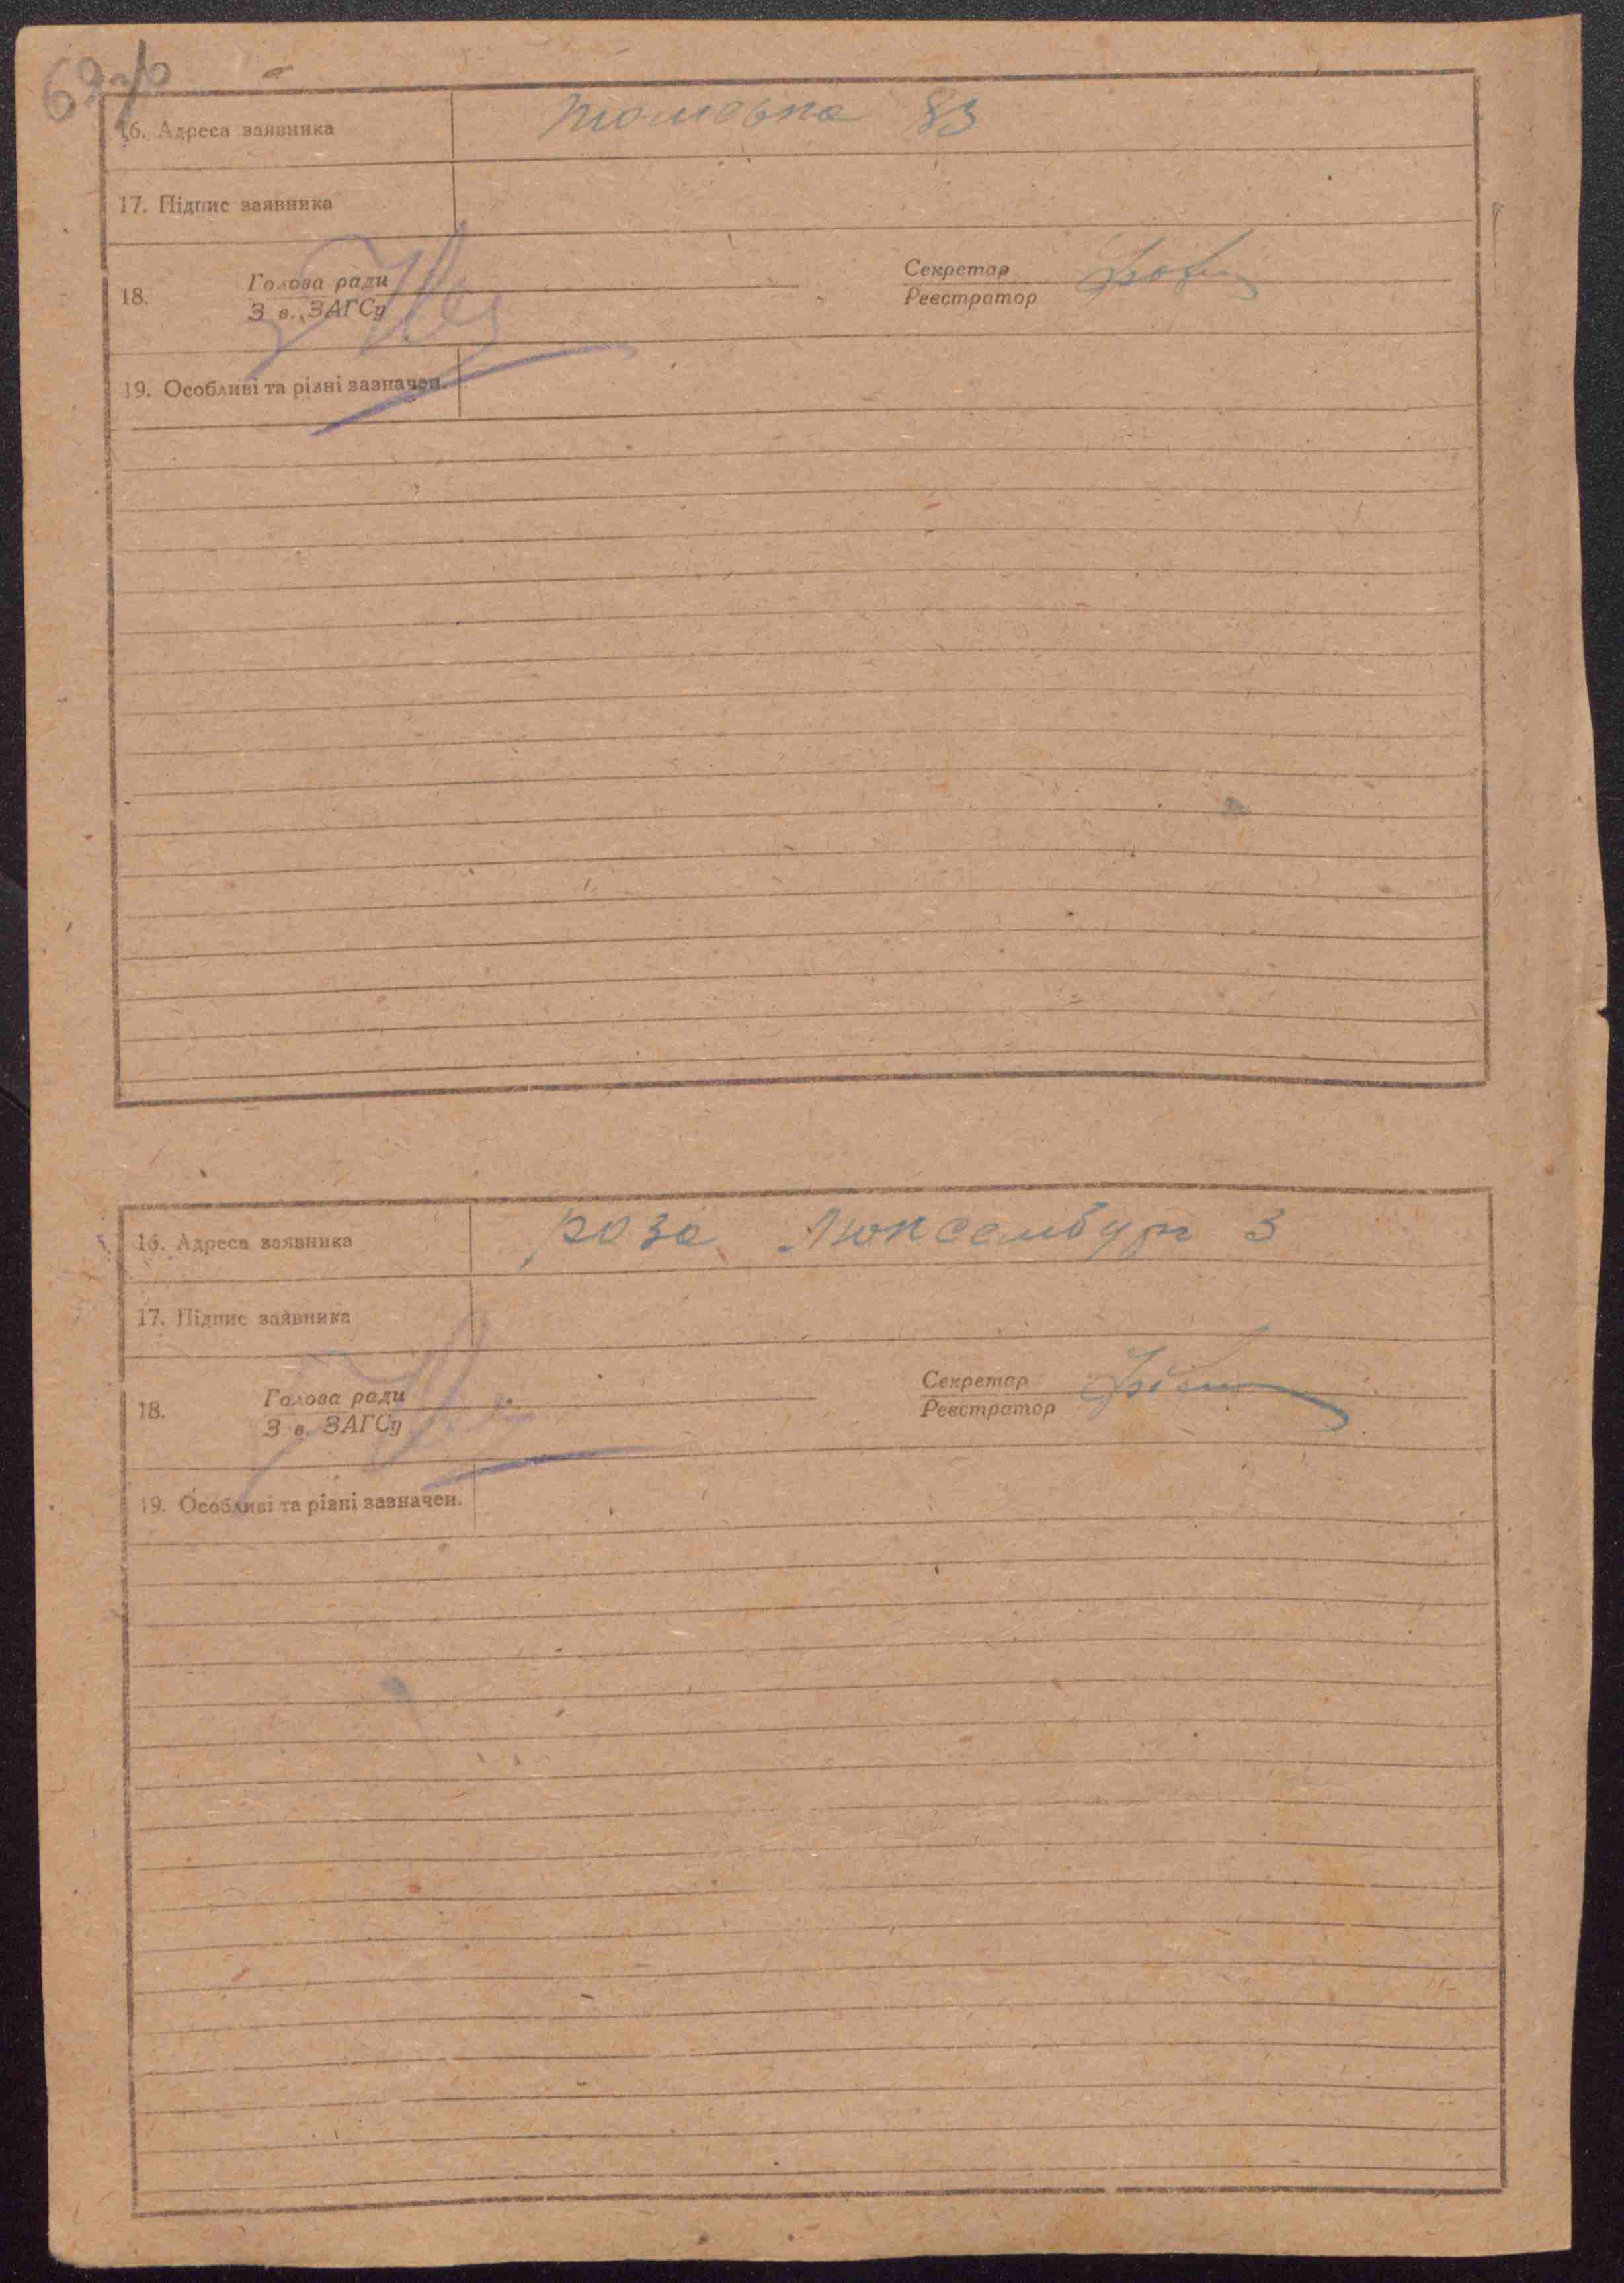 16. Адреса заявника Томська 83
17. Підпис заявника
18. Голова ради Секретар
З в. ЗАГСу Реєстратор
19. Особливі та різні зазначен.
16. Адреса заявника роза Люксембург 3
17. Підпис заявника
18. Голова ради Секретар
З в. ЗАГСу Реєстратор
19. Особливі та різні зазначен.